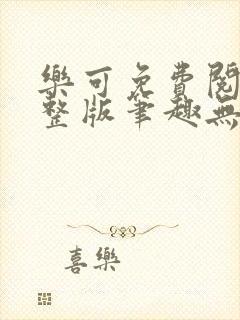 樂可免費閱
整版筆趣無
喜樂